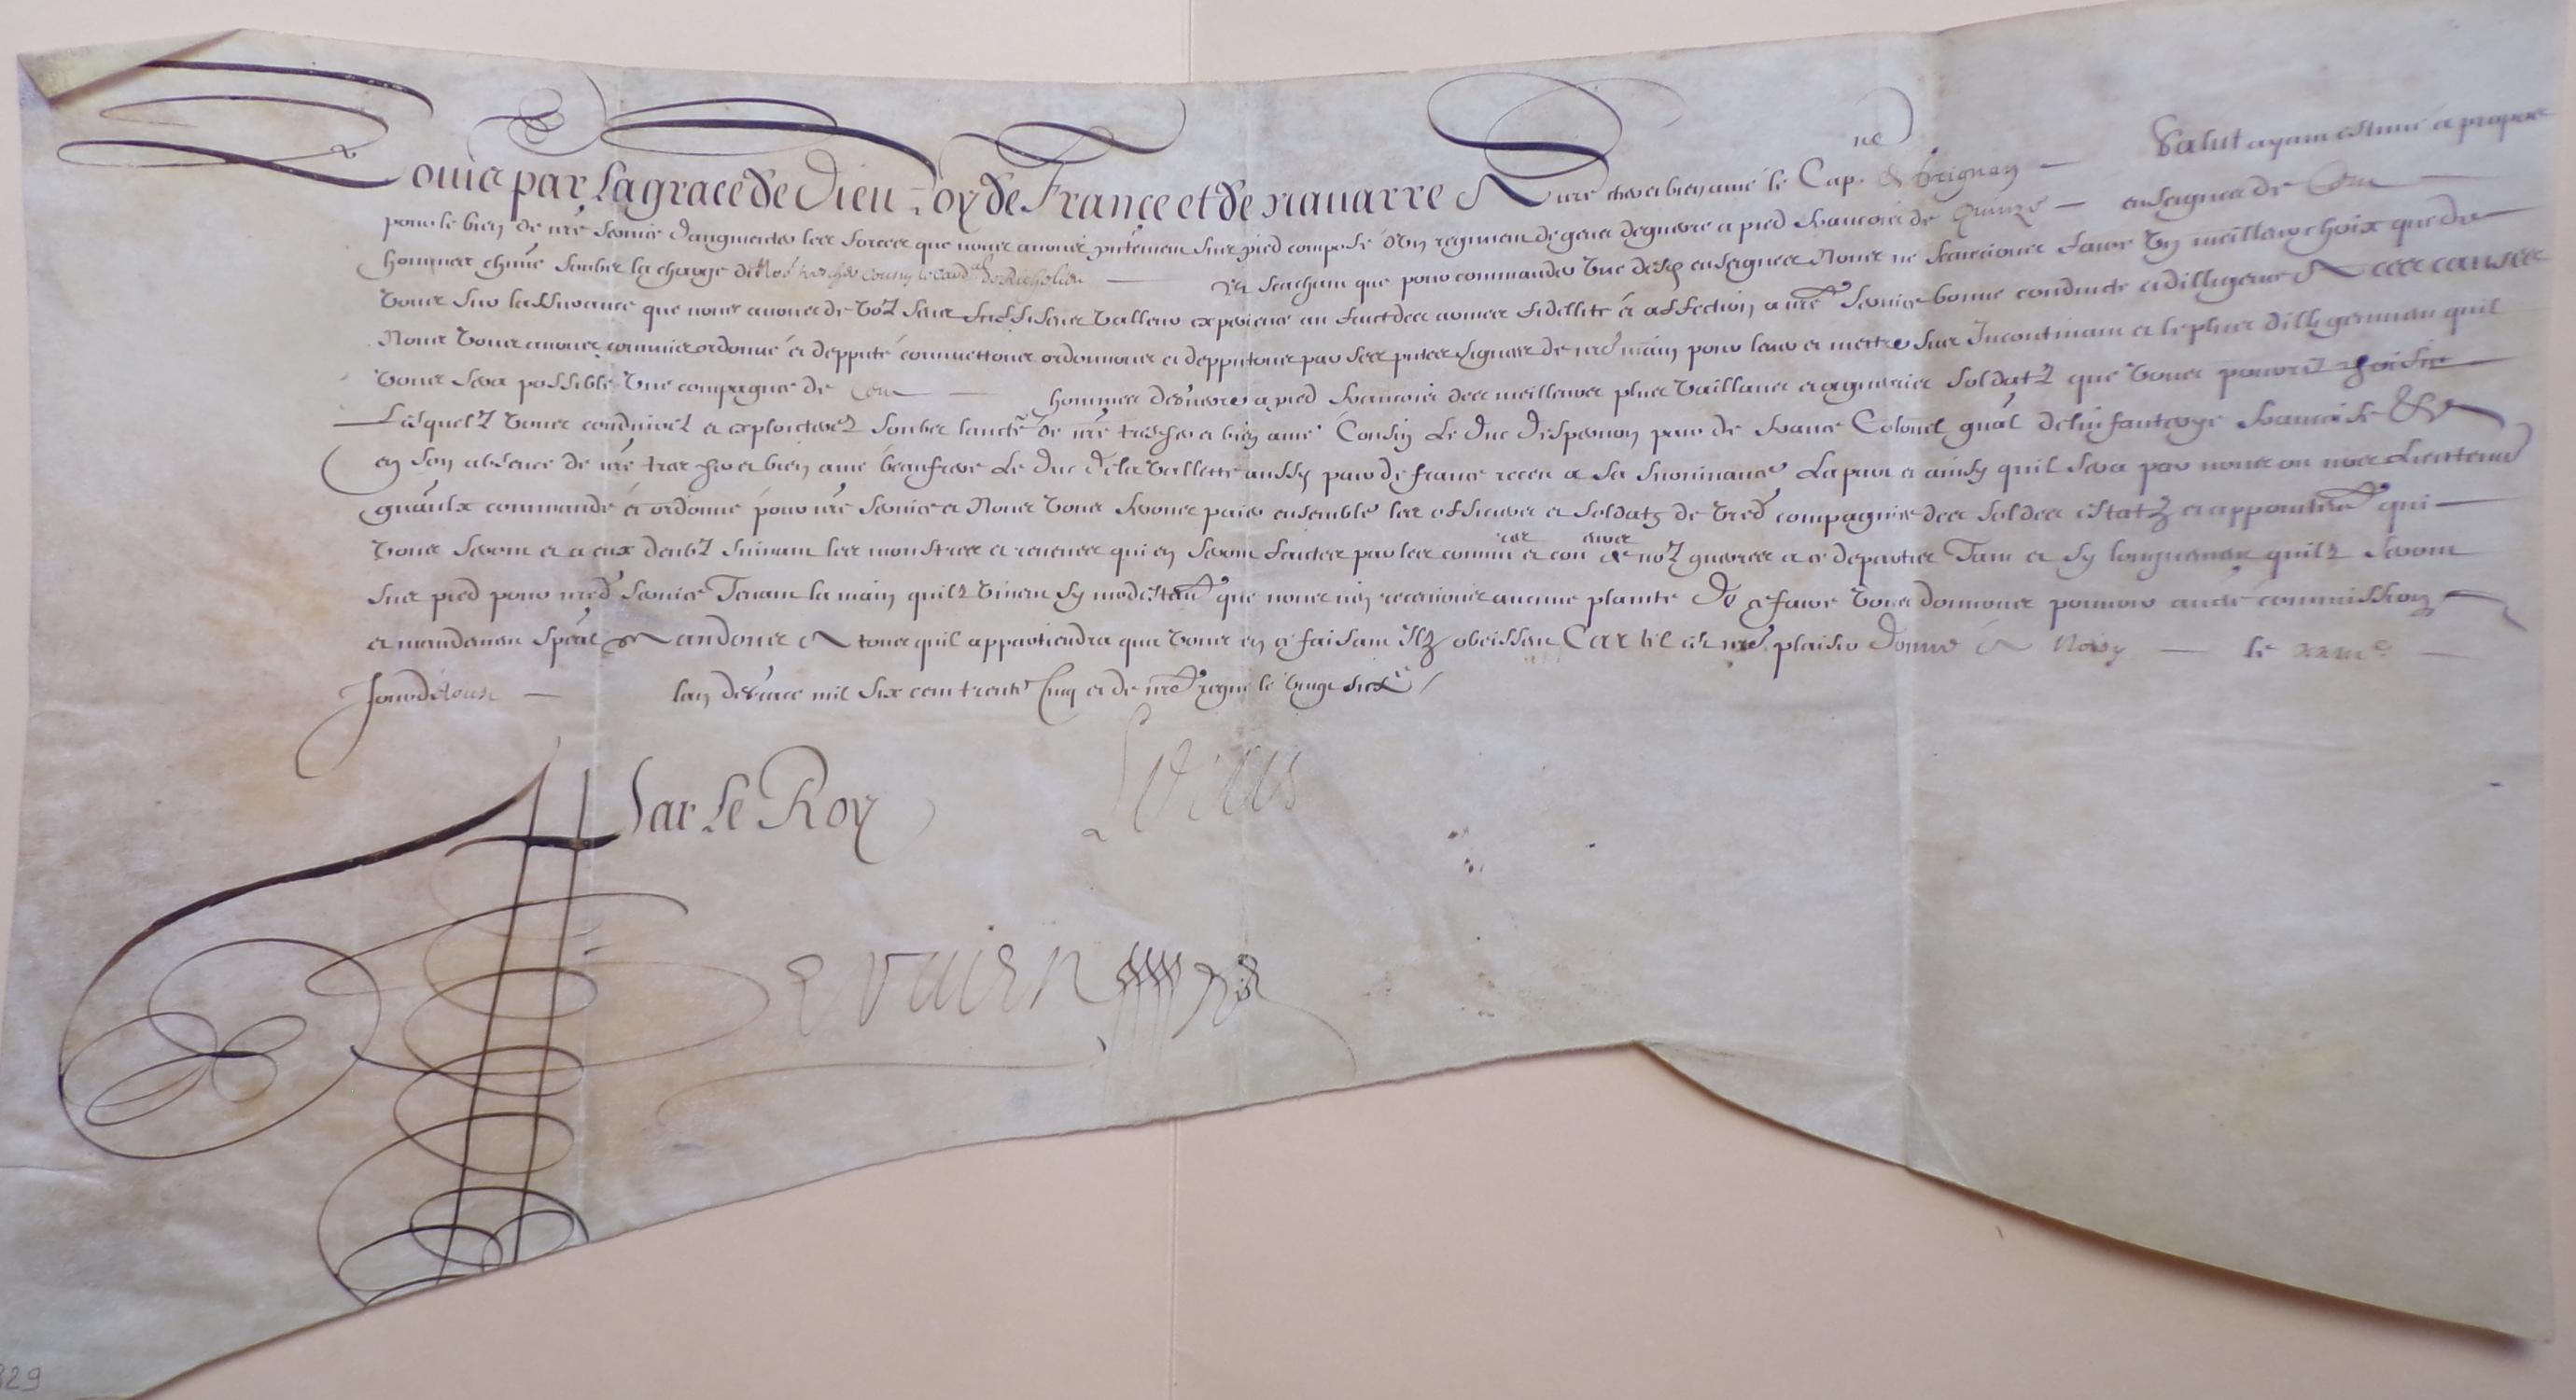 Louis par la grace de Dieu Roy de France et de nauarre A nre cher et bien amé le Cap.ne Brignan Salut ayant estimé a propos
pour le bien de nre seruice daugmenter les forces que nous auons pntement sur pied compose dun regiment de gens de guerre a pied francois de quinze enseignes de Cent
hommes chune soubz la charge de nre tres cher cousin le Card.al de Richelieu Et scachant que pour commander vne desd enseignes Nous ne scaurions faire vn meilleur choix que de
vous sur lassurance que nous auons de voz sens suffisence valleur experience au faict des armes fidellité et affection a nre seruice bonne conduicte et dilligence A ces causes
Nous vous auons commis ordonné et depputé commettons ordonnons et depputons par ces pntes signees de nre main pour leuer et mettre sus Incontinant et le plus dilligemment quil
vous sera possible vne compagnie de Cent hommes de guerre a pied francois des meilleurs plus vaillans et aguerris soldatz que vous pourrez choisir
Lesquelz vous conduirez et exploicterez soubz laucté de nre tres cher et bien amé Cousin Le Duc Despernon pair de france Colonel gnal de linfanterye francoise Et
en son absence de nre tres cher et bien amé beaufrere Le Duc de la Vallette aussy pair de france receu a sa suruiuance La part et ainsy quil sera par nous ou noz Lieutenans
gnaulx commandé et ordonné pour nre seruice et Nous vous ferons paier ensemble les officiers et soldatz de vred compagnie des soldes estatz et appointemens qui
vous seront et a eux deubz suiuant les monstres et reueues qui en seront faictes par les commires et conrolleurs de noz guerres a ce departis Tant et sy longuement quilz seront
sur pied pour nred seruice Tenant la main quilz viuent sy modestement que nous nen receuions aucune plainte De ce faire vous donnons pouuoir aucté commission
et mandement spéal Mandons A tous quil appartiendra qua vous en ce faisant Ilz obeissent Car tel est nre plaisir Donné A Noisy le
Jour daoust lan de grace mil six cent trente Cinq et de nre regne le vingt sixe
Par le Roy
Louis
Seruien
829